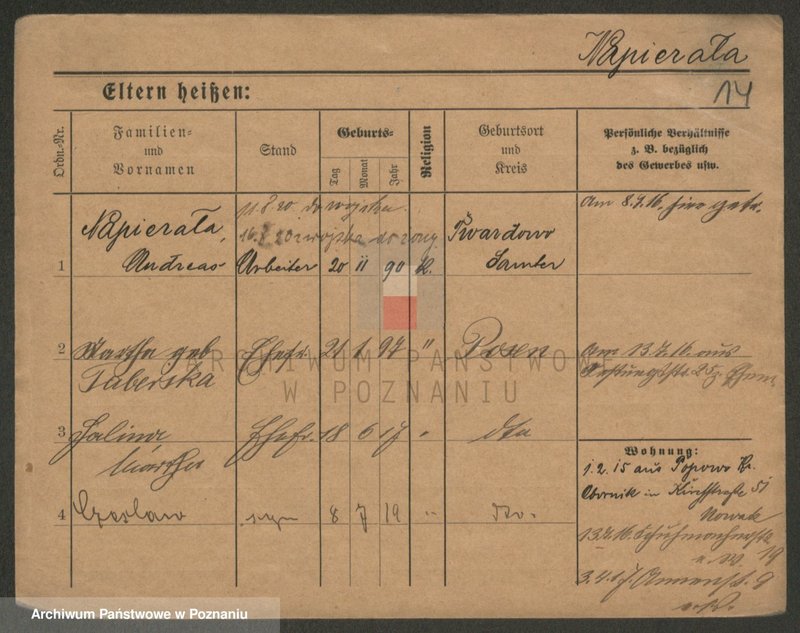 Napierała
14
Eltern heißen:
Ordn.-Nr.
Familien-
und
Vornamen
Stand
Geburts-
Tag
Monat
Jahr
Religion
Geburtsort
und
Kreis
Persönliche Verhältnisse
z. B. bezüglich
des Gewerbes usw.
11.8 20 do wojska.
16.7 20 z wojska do żony
Am 8.7.16. hier getr.
1 Napierała, Andreas Arbeiter 20 11 90 K. Twardowo
Samter
2 Martha geb Ehefr. 21 1 97 " Posen
Taberska
Am 13.7.16. aus
3 Halina 18 6 17 " dto
Martha
4 Czeslaw syn 8 7 19 " dto.
Wohnung:
1.2.15 aus Popowo Kr.
Obornik in Kirchstraße 51
Nowak
13.7.16. Schuhmacherstr
19
3.4.17 9
ARCHIWUM PAŃSTWOWE
W POZNANIU
Archiwum Państwowe w Poznaniu